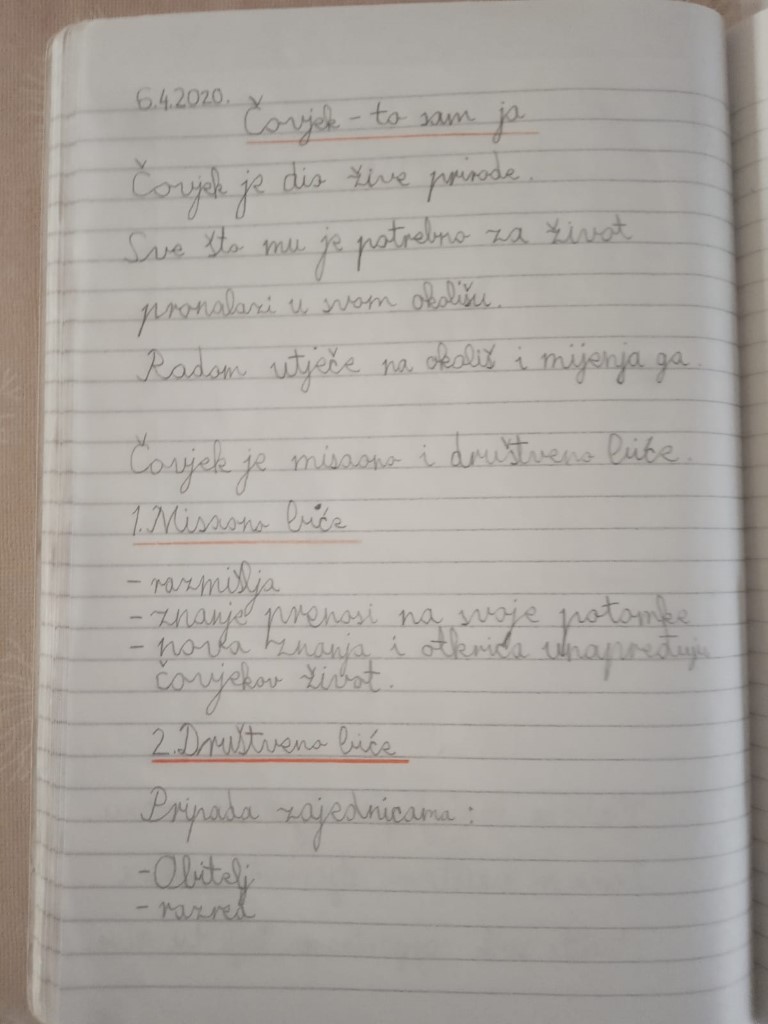 6.4.2020.
Čovjek - to sam ja
Čovjek je dio žive prirode.
Sve što mu je potrebno za život
pronalazi u svom okolišu.
Radom utječe na okoliš i mijenja ga.
Čovjek je misaono i društveno biće.
1. Misaono biće
- razmišlja
- znanje prenosi na svoje potomke
- nova znanja i otkrića unapređuju
čovjekov život.
2. Društveno biće
Pripada zajednicama:
- Obitelj
- razred